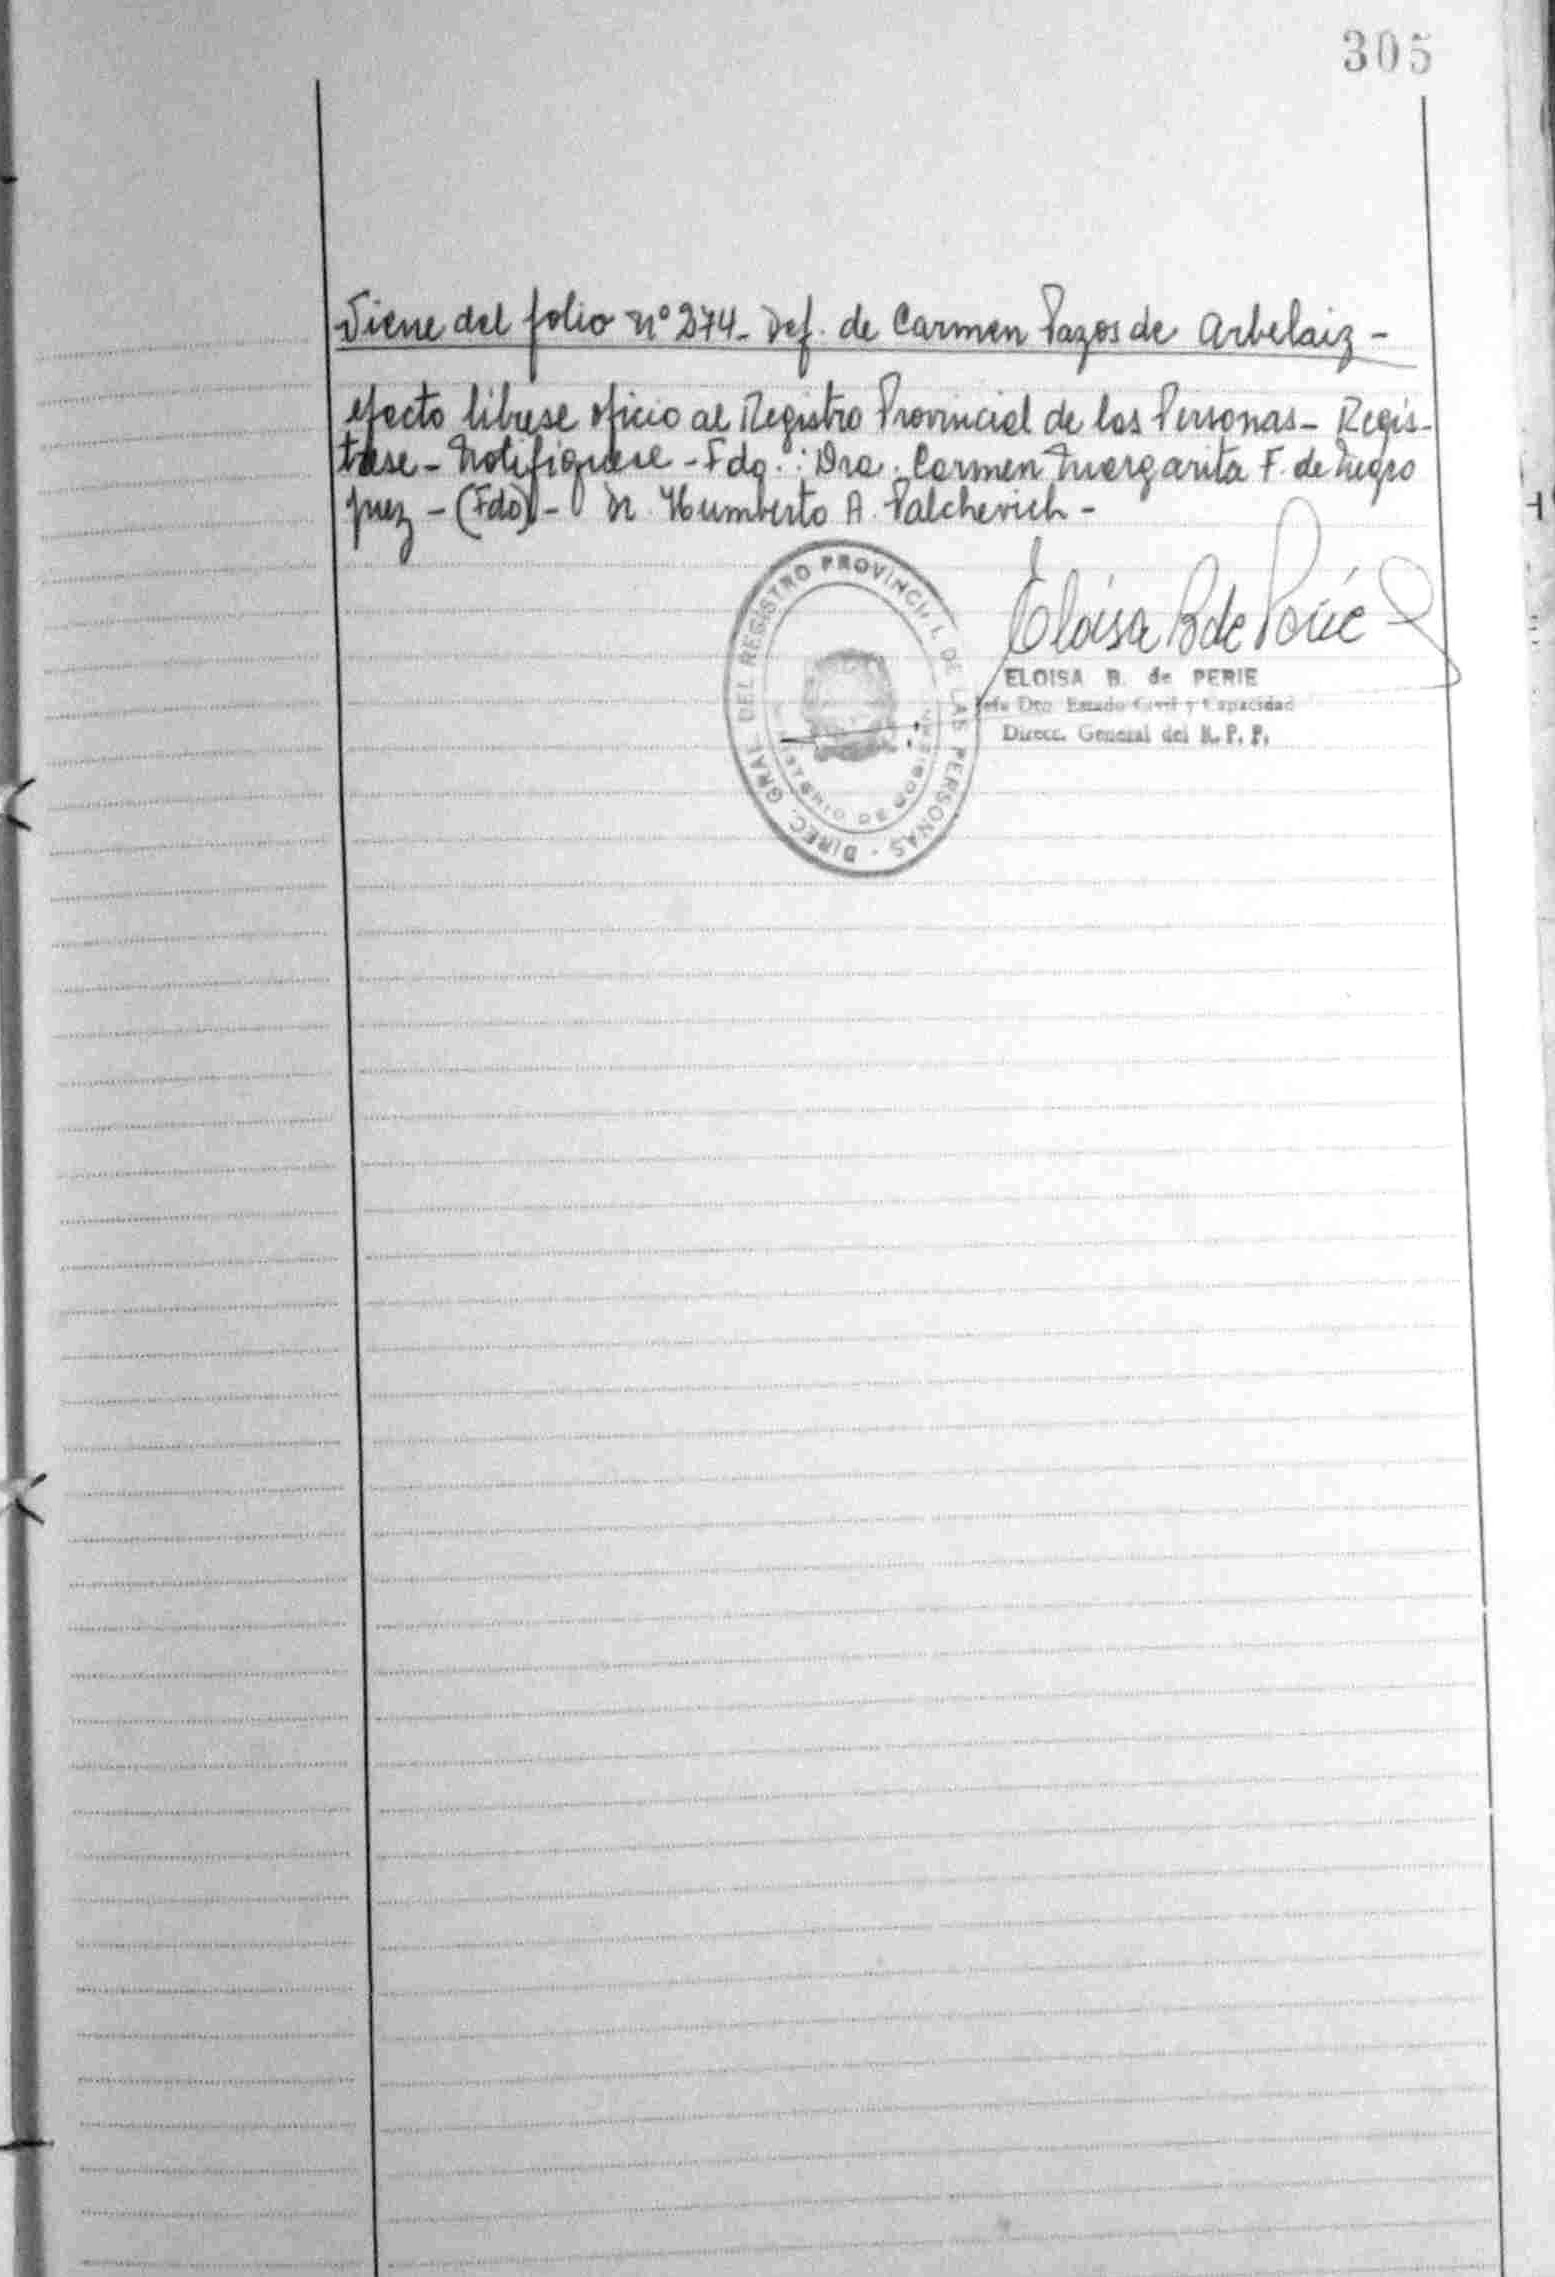 305
Viene del folio nº 274- Def. de Carmen Pazos de Arbelaiz -
efecto líbrese oficio al Registro Provincial de las Personas- Regís-
trese- Notifíquese - Fdo.: Dra. Carmen Margarita F. de Negro
juez - (Fdo) - Dr. Humberto A. Palchevich -
DIREC. GRAL. DEL REGISTRO PROVINCIAL DE LAS PERSONAS -
MINISTERIO DE GOBIERNO
Eloisa B de Perié
ELOISA B. de PERIE
Jefe Dto. Estado Civil y Capacidad
Direcc. General del R. P. P.